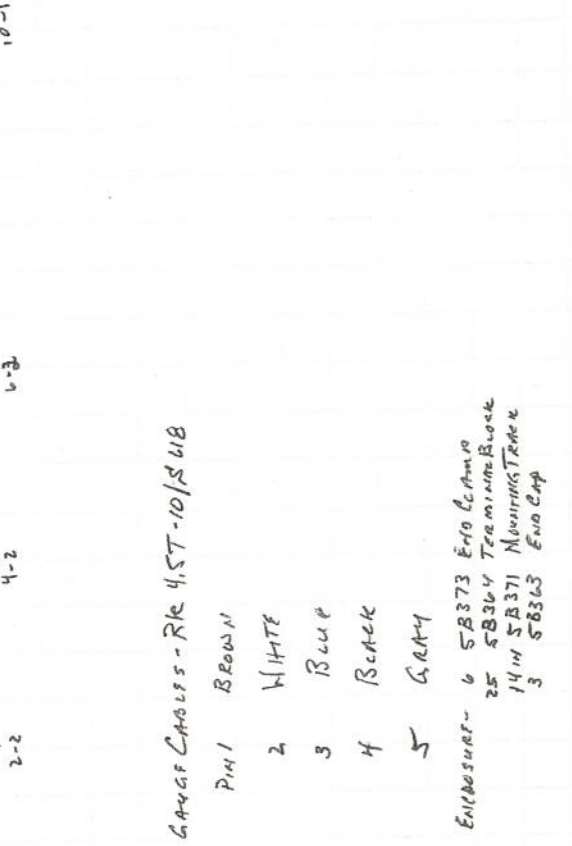 2-2 4-2 6-2 10-1
GAUGE CABLES - RK 4.5T-10/S618
PIN 1 BROWN
2 WHITE
3 BLUE
4 BLACK
5 GRAY
ENCLOSURE - 6 5B373 END CLAMP
25 5B364 TERMINAL BLOCK
14 IN 5B371 MOUNTING TRACK
3 5B363 END CAP